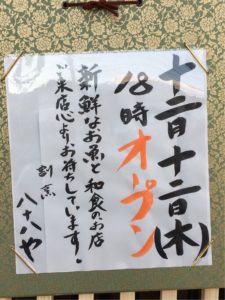 十二月十二日(木)
18時オープン
新鮮なお魚と和食のお店
ご来店心よりお待ちしています!
割烹
八十八や